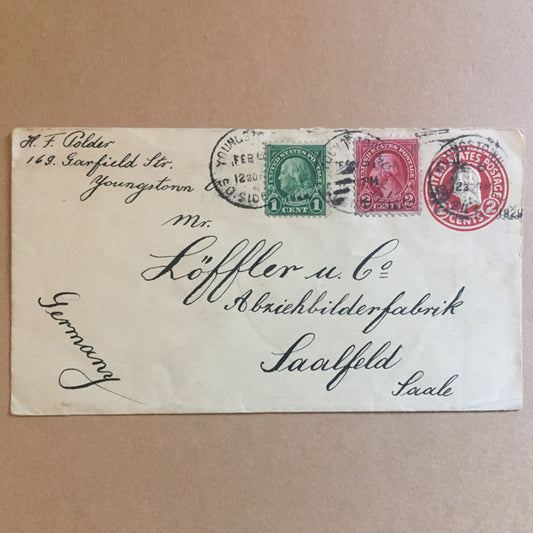 H. F. Polder
169. Garfield Str.
Youngstown
YOUNGSTO
FEB 6
1230
UNITED STATES POSTAGE
1 CENT 1
UNITED STATES POSTAGE
2 CENTS 2
PM
UNITED STATES POSTAGE
2 CENTS 2
1929
Mr.
Löffler u. Co
Abziehbilderfabrik
Saalfeld
Saale
Germany